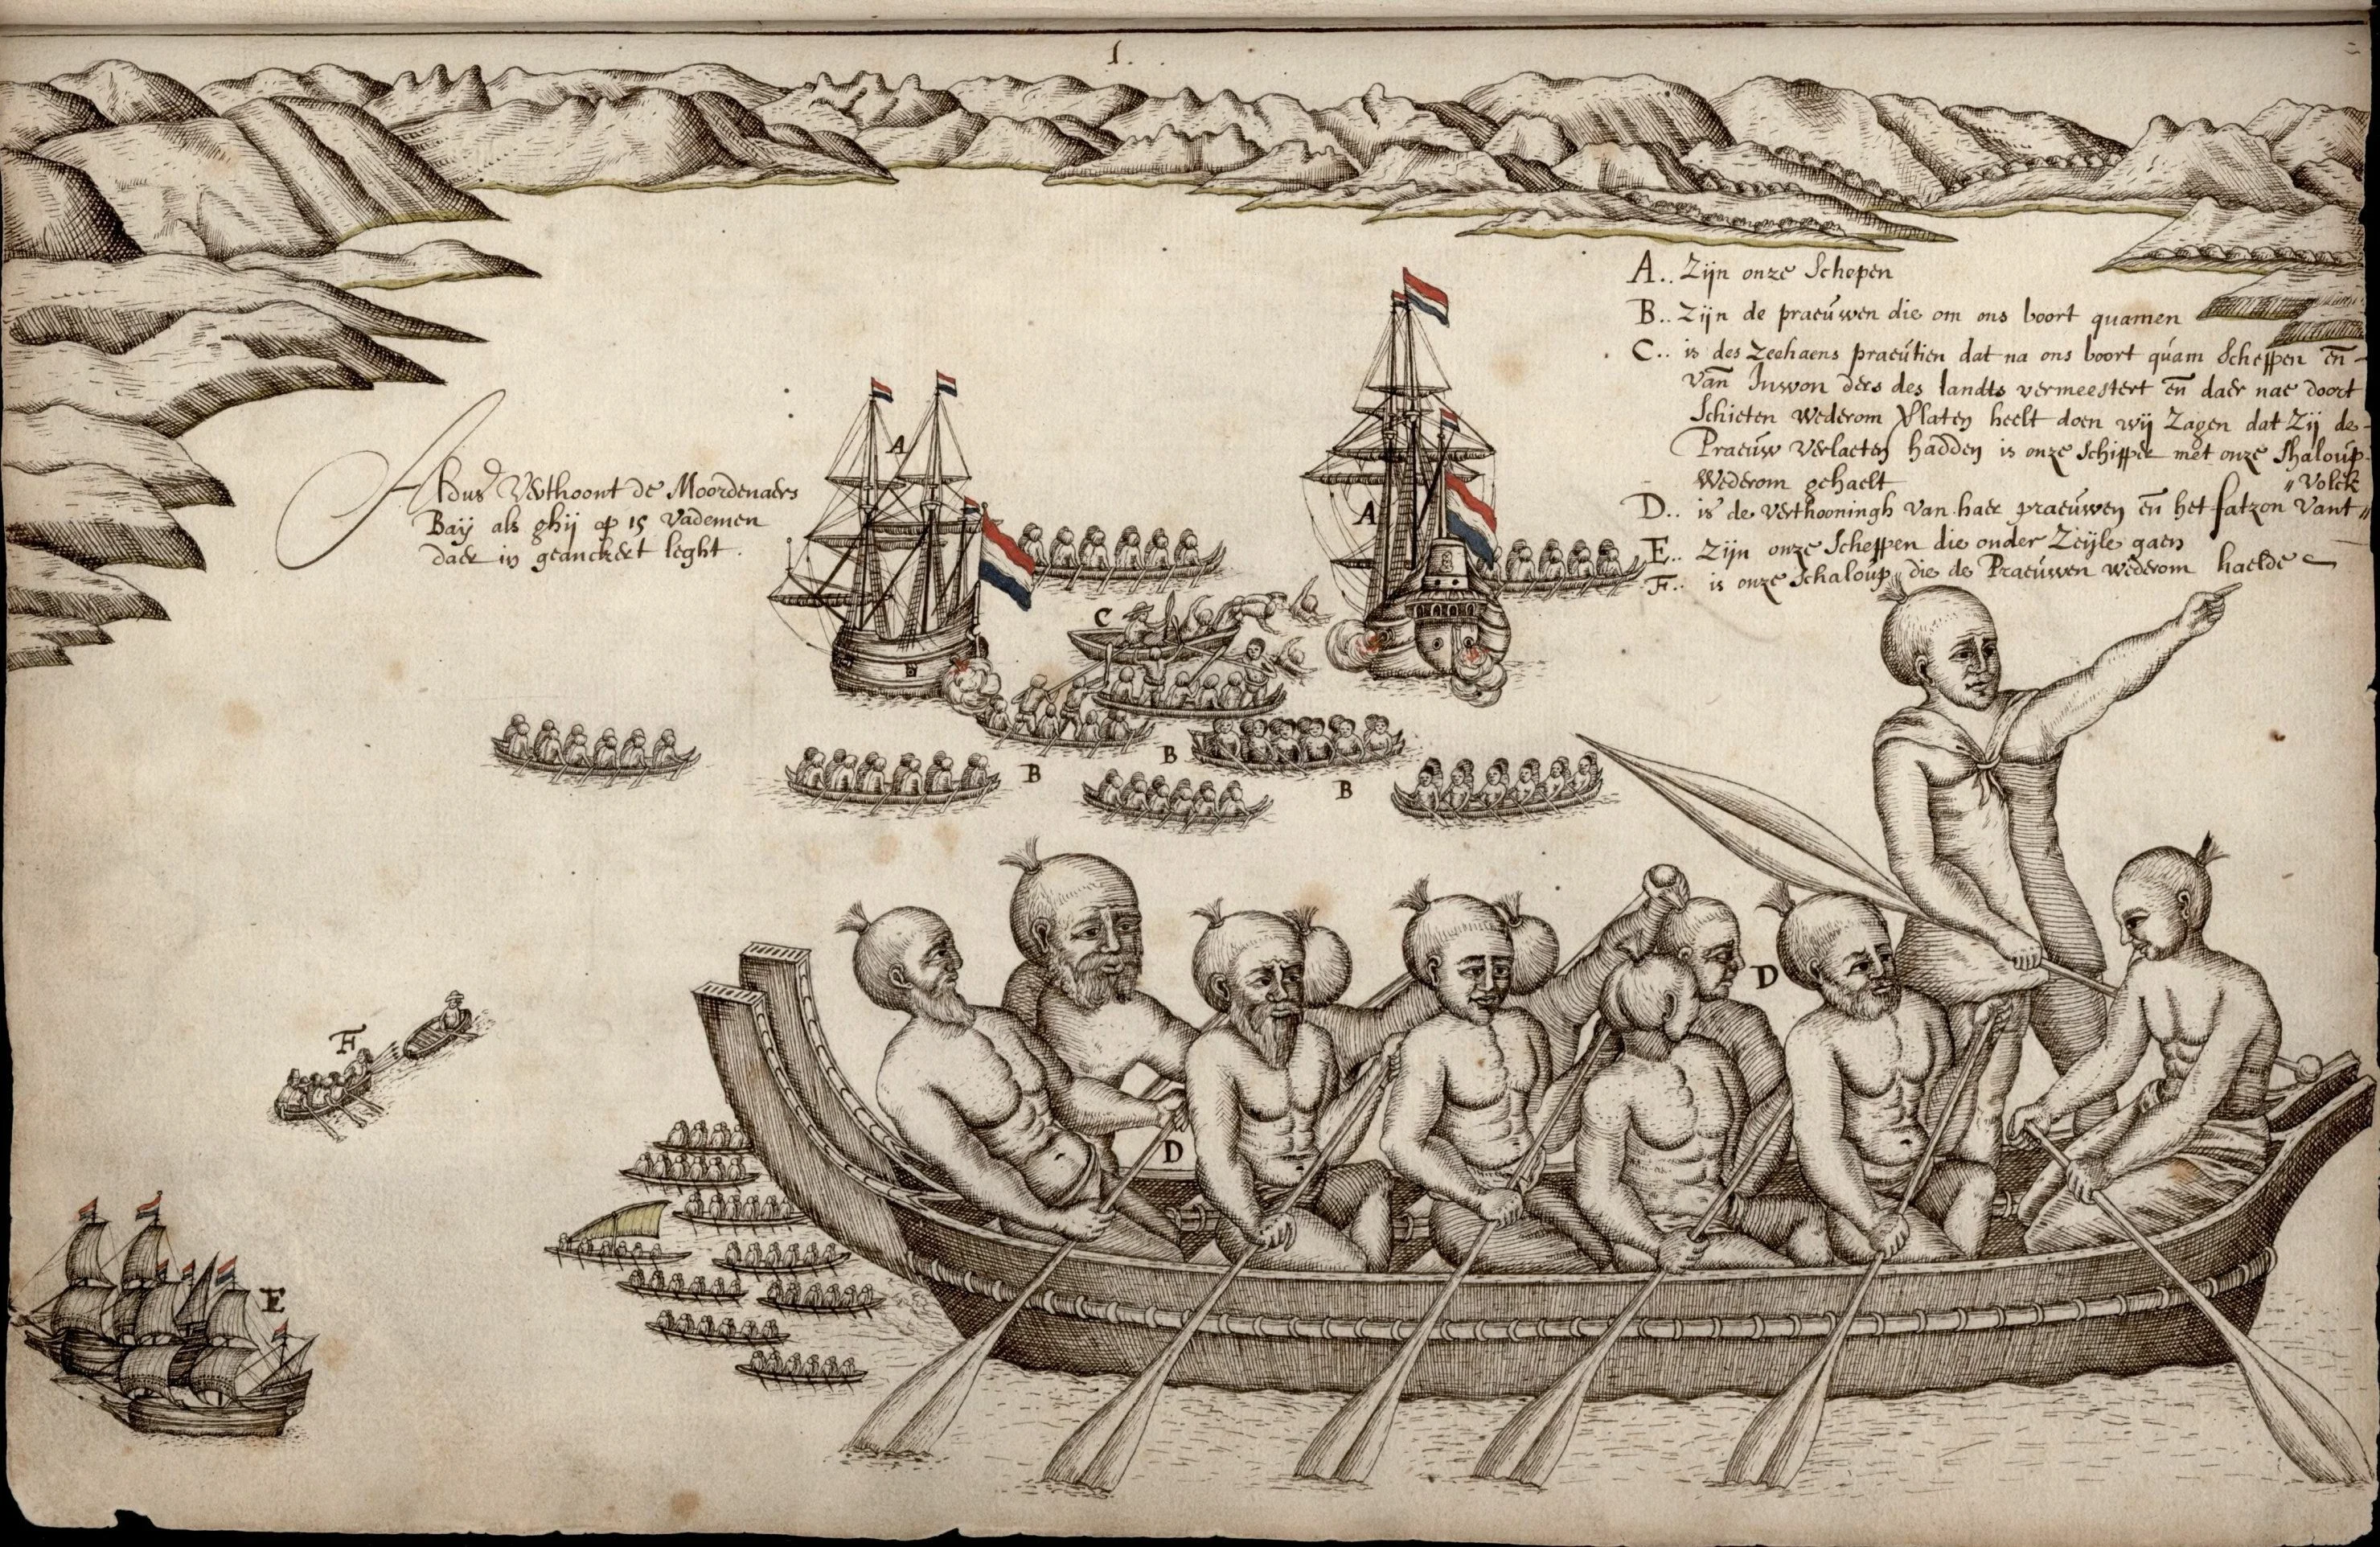 1.
A.. Zijn onze Schepen
B.. Zijn de praeuwen die om ons boort quamen
C.. is des Zeehaens praeutien dat na ons boort quam Scheppen en̄
van̄ Inwon ders des landts vermeestert en̄ daer nae doort
Schieten wederom Vlaten heelt doen wij Zagen dat Zij de
Praeuw verlaeten hadden is onze Schipper met onze Shaloup
Wederom gehaelt
"Volck
D.. is de verthooningh van haer praeuwen en̄ het fatzon vant "
E.. Zijn onze Scheppen die onder Zeijle gaen
F.. is onze Schaloup die de Praeuwen wederom haelde
Aldus Verthoont de Moordenaers
Baij als ghij op 15 Vademen
daer in geanckert leght.
A
A
C
B
B
B
D
D
F
E